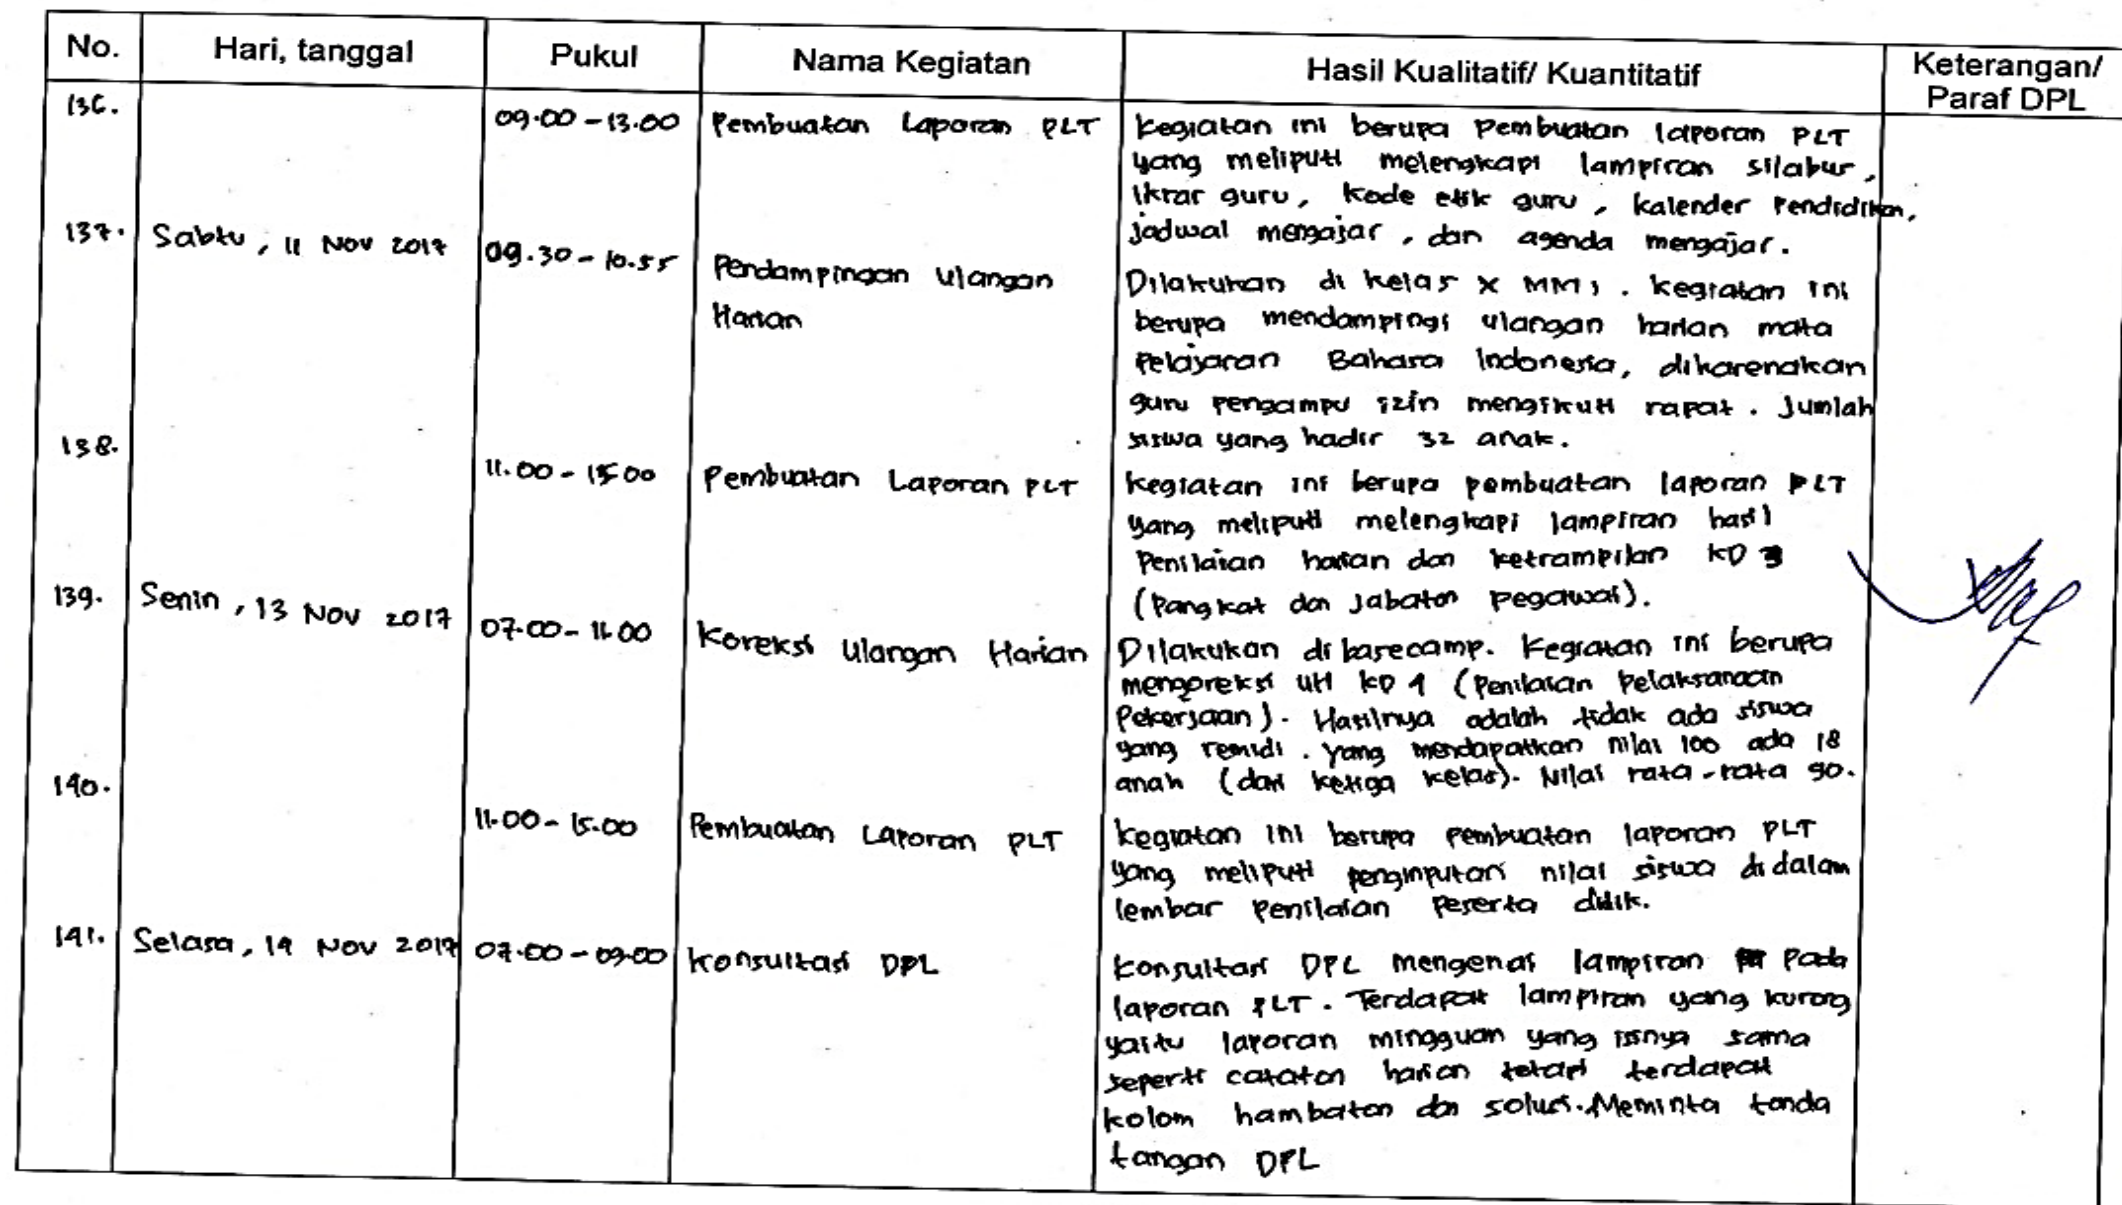 No. Hari, tanggal Pukul Nama Kegiatan Hasil Kualitatif/ Kuantitatif Keterangan/
Paraf DPL
136. 09.00 - 13.00 Pembuatan Laporan PLT Kegiatan ini berupa pembuatan laporan PLT
yang meliputi melengkapi lampiran silabus,
Ikrar guru, kode etik guru, kalender pendidikan,
jadwal mengajar, dan agenda mengajar.
137. Sabtu, 11 Nov 2017 09.30 - 10.55 Pendampingan Ulangan
Harian
Dilakukan di kelas X MM1. Kegiatan ini
berupa mendampingi ulangan harian mata
pelajaran Bahasa Indonesia, dikarenakan
guru pengampu izin mengikuti rapat. Jumlah
siswa yang hadir 32 anak.
138. 11.00 - 15.00 Pembuatan Laporan PLT Kegiatan ini berupa pembuatan laporan PLT
yang meliputi melengkapi lampiran hasil
Penilaian harian dan ketrampilan KD 3
(Pangkat dan Jabatan pegawai).
139. Senin, 13 Nov 2017 07.00 - 11.00 Koreksi Ulangan Harian Dilakukan di basecamp. Kegiatan ini berupa
mengoreksi UH KD 4 (Penilaian Pelaksanaan
Pekerjaan). Hasilnya adalah tidak ada siswa
yang remidi. yang mendapatkan nilai 100 ada 18
anak (dari ketiga kelas). Nilai rata-rata 90.
140. 11.00 - 15.00 Pembuatan Laporan PLT Kegiatan ini berupa pembuatan laporan PLT
yang meliputi penginputan nilai siswa di dalam
lembar penilaian peserta didik.
141. Selasa, 14 Nov 2017 07.00 - 09.00 Konsultasi DPL Konsultasi DPL mengenai lampiran pada
laporan PLT. Terdapat lampiran yang kurang
yaitu laporan mingguan yang isinya sama
seperti catatan harian tetapi terdapat
kolom hambatan dan solusi. Meminta tanda
tangan DPL